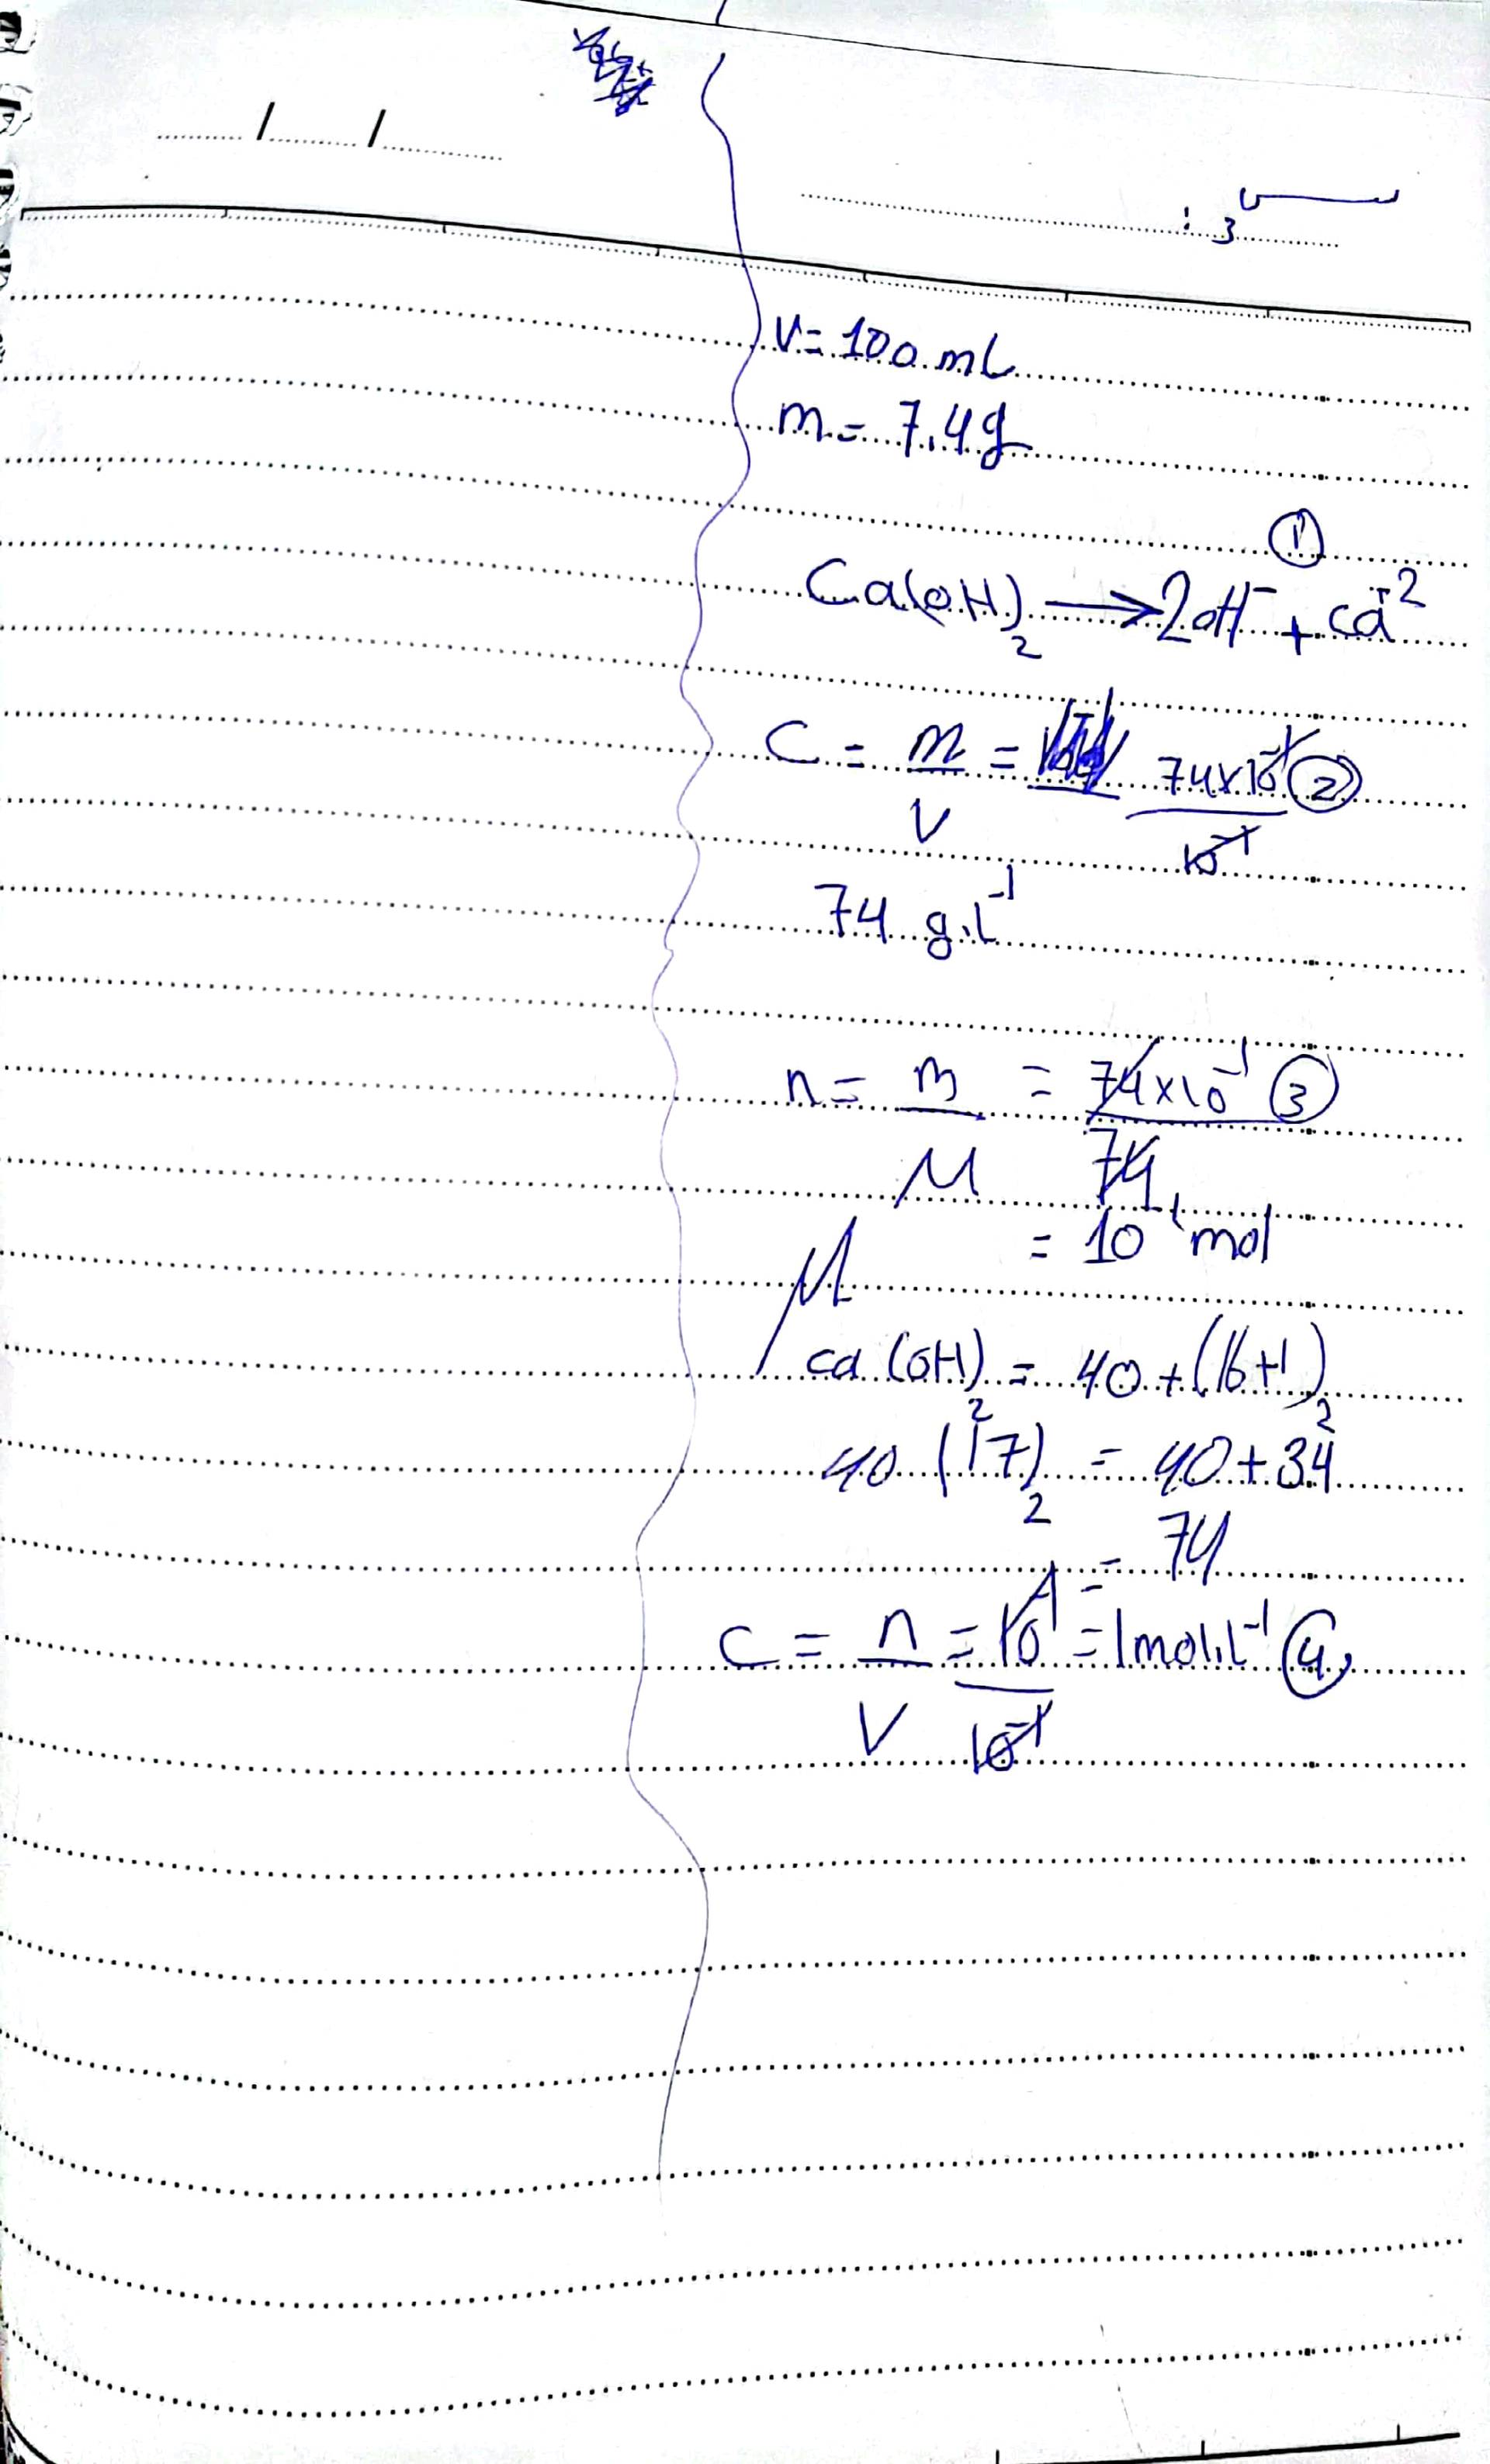 / /
س 3 :
V = 100 mL
m = 7.4 g
①
Ca(OH)₂ → 2OH⁻ + Ca⁺²
C = m/V = 74×10⁻¹/10⁻¹ ②
74 g.l⁻¹
n = m/M = 74×10⁻¹/74 ③
= 10⁻¹ mol
M
ca(OH)₂ = 40 + (16+1)₂
40 (17)₂ = 40 + 34
= 74
C = n/V = 10⁻¹/10⁻¹ = 1 mol.l⁻¹ ④